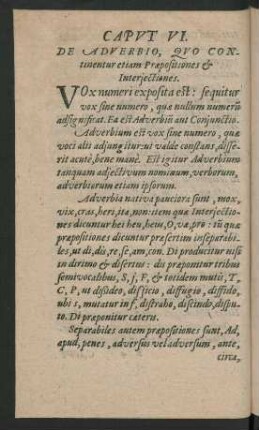 CAPVT VI.
DE ADVERBIO, QVO CON-
tinentur etiam Præpositiones &
Interjectiones.
VOx numeri exposita est: sequitur
vox sine numero, quæ nullum numerũ
adsignificat. Ea est Adverbiũ aut Conjunctio.
Adverbium est vox sine numero, quæ
voci alii adjungitur: ut valde constans, disse-
rit acutè, bene manè. Est igitur Adverbium
tanquam adjectivum nominum, verborum,
adverbiorum etiam ipsorum.
Adverbia nativa pauciora sunt, mox,
vix, cras, heri, ita, non: item quæ Interjectio-
nes dicuntur hei heu, hem, O, væ, pro: tũ quæ
præpositiones dicuntur præsertim inseparabi-
les, ut di, dis, re, se, am, con. Di producitur nisi
in dirimo & disertus: dis præponitur tribus
semivocalibus, S, J, F, & totidem mutis, T,
C, P, ut dissideo, disjicio, diffugio, diffislo,
ubi s, mutatur in f, distraho, discindo, dispu-
to. Di præponitur cæteris.
Separabiles autem præpositiones sunt, Ad,
apud, penes, adversus vel adversum, ante,
circa,